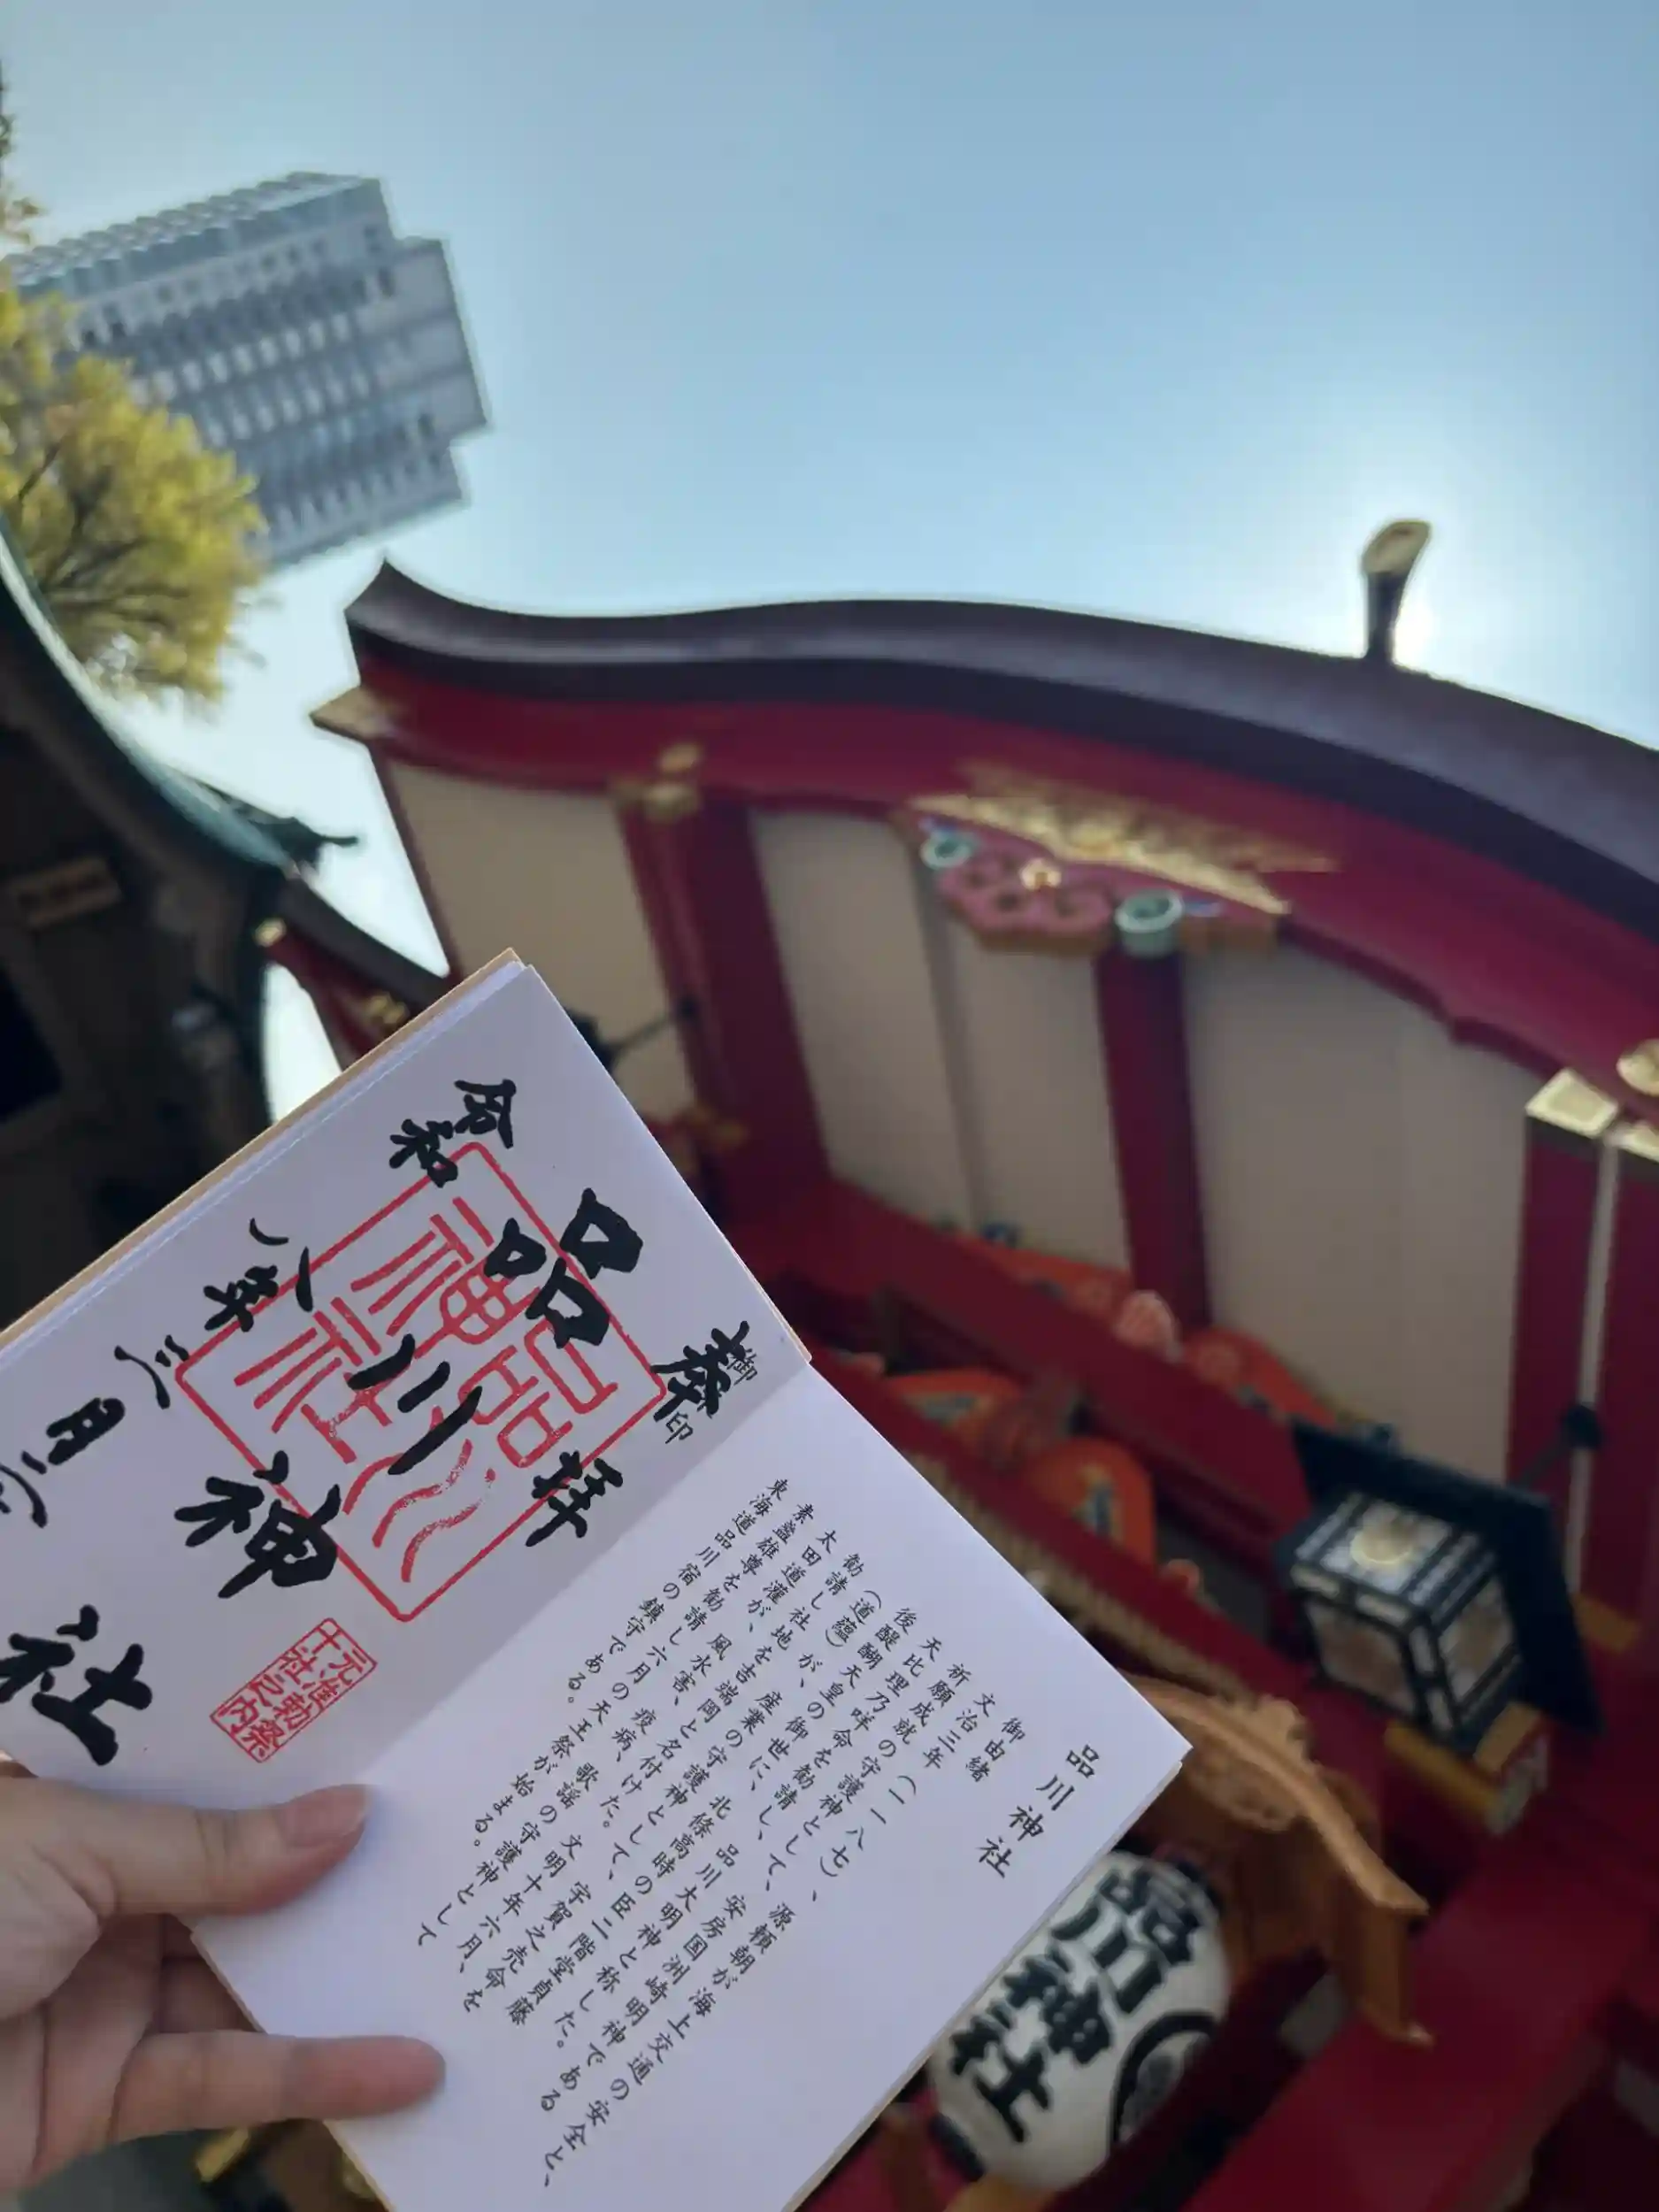 奉拝
御印
品川神社
令和八年三月
品川神社
元准勅祭
十社之内
品川神社
御由緒
文治三年(一一八七)、源頼朝が海上交通の安全と、
祈願成就の守護神として、安房国洲崎明神である
天比理乃咩命を勧請して、品川大明神と称した。
後醍醐天皇の御世に、北條高時の臣二階堂貞藤
(道蘊)が、産業の守護神として、宇賀之売命を
勧請し社地を吉端岡と名付けた。文明十年六月、
太田道灌が、風水害、疫病、歌謡の守護神として
素盞雄尊を勧請し六月の天王祭が始まる。
東海道品川宿の鎮守である。
品川神社